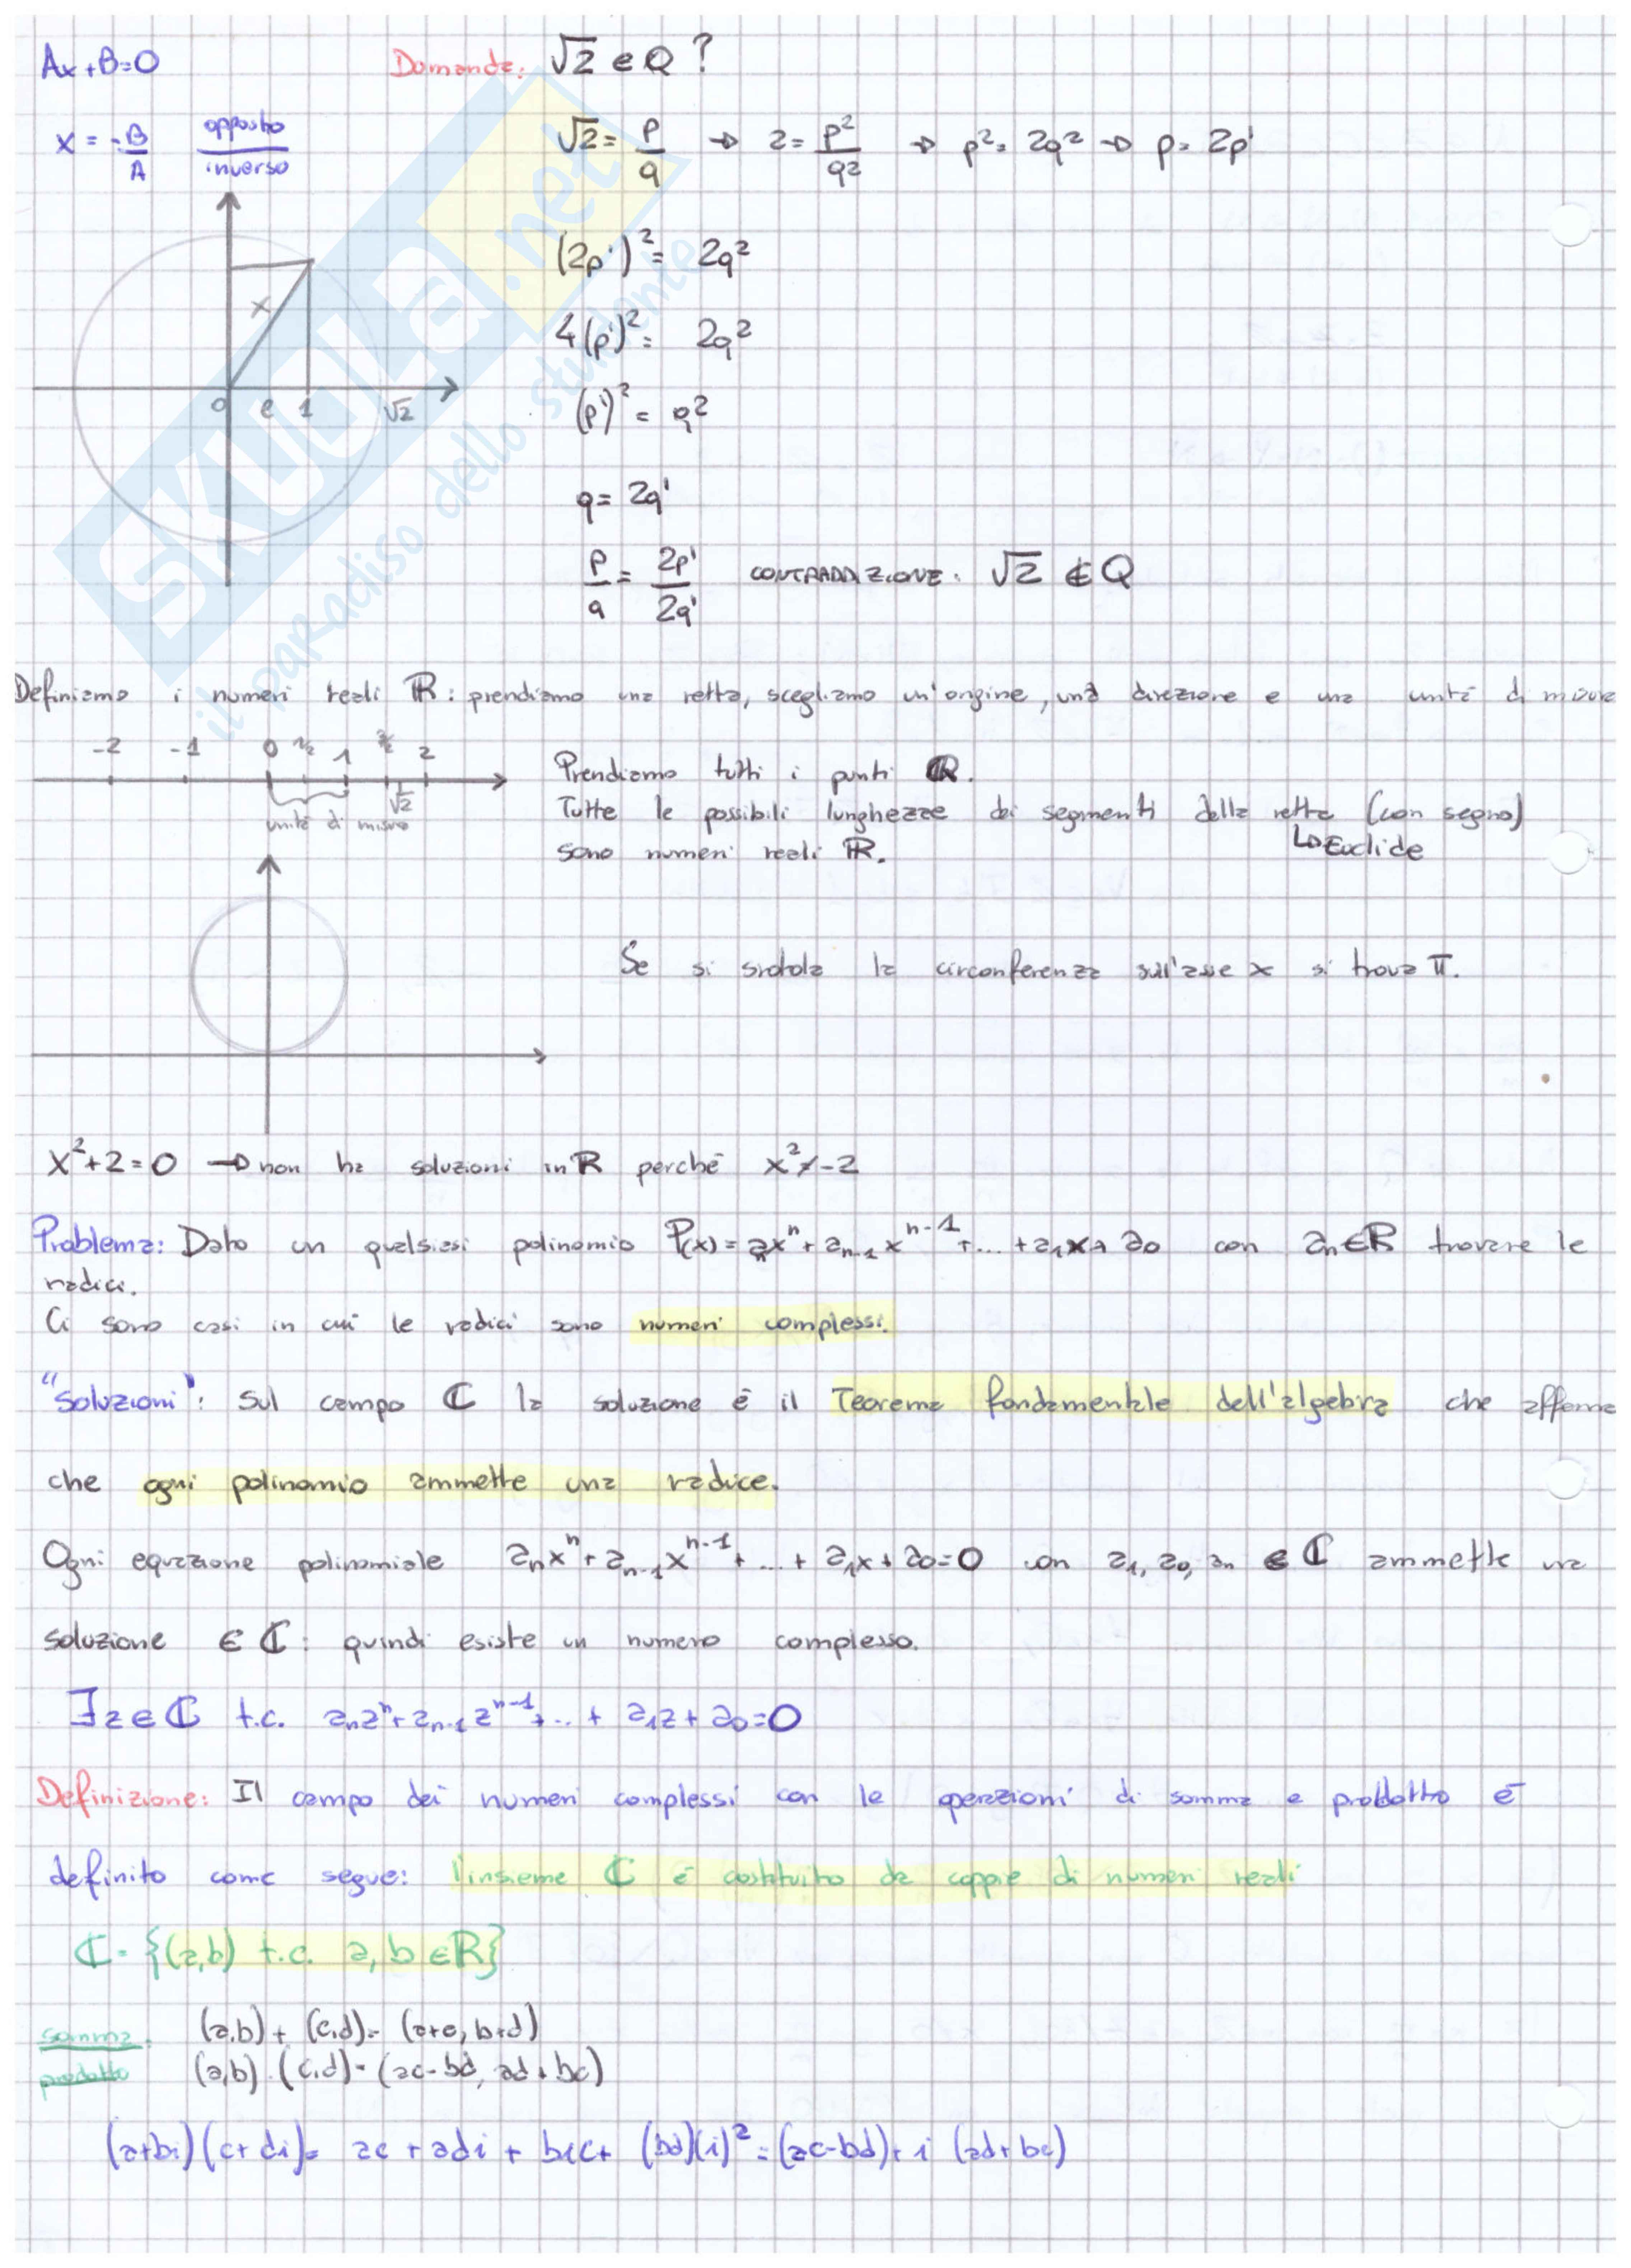 Ax+B=0
Domanda: √2 ∈ Q ?
x = -B/A opposto/inverso
√2 = p/q → 2 = p²/q² → p² = 2q² → p = 2p'
(2p')² = 2q²
4(p')² = 2q²
(p')² = q²
x
0 e 1 √2
q = 2q'
p/q = 2p'/2q' CONTRADDIZIONE. √2 ∉ Q
Definiamo i numeri reali ℝ: prendiamo una retta, scegliamo un'origine, una direzione e una unità di misura
-2 -1 0 ½ 1 3/2 2
√2
unità di misura
Prendiamo tutti i punti ℝ.
Tutte le possibili lunghezze dei segmenti della retta (con segno)
↳ Euclide
sono numeri reali ℝ.
Se si srotola la circonferenza sull'asse x si trova π.
x²+2=0 → non ha soluzioni in ℝ perché x²≠-2
Problema: Dato un qualsiasi polinomio P(x) = aₙxⁿ + aₙ₋₁xⁿ⁻¹+...+a₁x+a₀ con aₙ∈ℝ trovare le
radici.
Ci sono casi in cui le radici sono numeri complessi.
"Soluzioni": Sul campo ℂ la soluzione è il Teorema fondamentale dell'algebra che afferma
che ogni polinomio ammette una radice.
Ogni equazione polinomiale aₙxⁿ+aₙ₋₁xⁿ⁻¹+...+a₁x+a₀=0 con a₁, a₀, aₙ ∈ ℂ ammette una
soluzione ∈ ℂ: quindi esiste un numero complesso.
∃z∈ℂ t.c. aₙzⁿ+aₙ₋₁zⁿ⁻¹+...+a₁z+a₀=0
Definizione: Il campo dei numeri complessi con le operazioni di somma e prodotto è
definito come segue: l'insieme ℂ è costituito da coppie di numeri reali
ℂ = {(a,b) t.c. a,b ∈ℝ}
somma: (a,b)+(c,d)=(a+c, b+d)
prodotto (a,b)·(c,d)=(ac-bd, ad+bc)
(a+bi)(c+di)= ac+adi+bic+(bd)(i)²=(ac-bd)+i(ad+bc)
SKUOLA.net
il paradiso dello studente